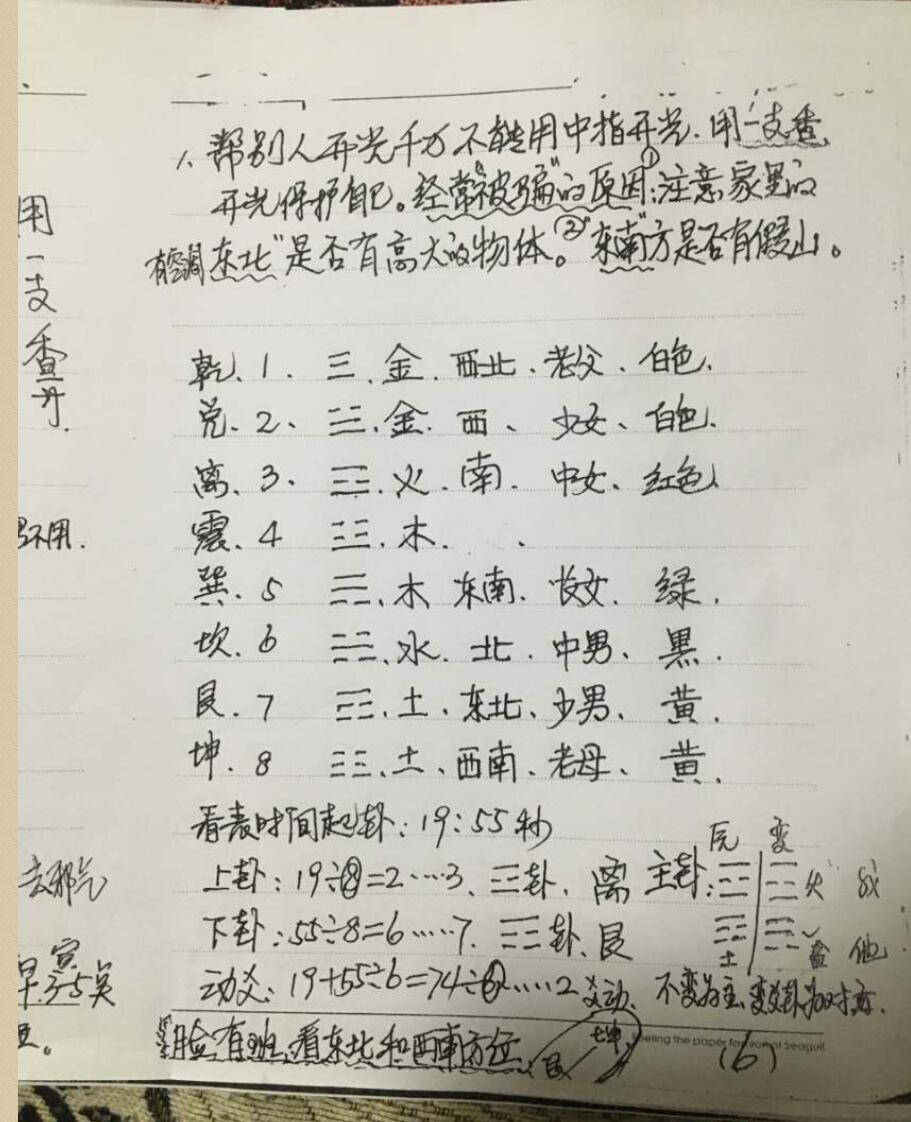 用
一
支
香
开.
不用.
去邪气
寅
早.3-5
1、帮别人开光千万不能用中指开光.用一支香
开光保护自己。经常"被骗"的原因:①注意家里的
"东北"是否有高大的物体。②"东南"方是否有假山。
乾.1. ☰.金.西北.老父.白色.
兑.2、☱.金.西、少女、白色.
离.3、☲.火.南.中女、红色.
震.4 ☳.木.
巽.5 ☴、木 东南.长女.绿.
坎.6 ☵.水.北.中男、黑.
艮.7 ☶.土、东北、少男、黄.
坤.8 ☷.土、西南、老母、黄.
看表时间起卦:19:55秒
原 变
上卦:19÷8=2……3.☲卦.离 主卦: ☲ ☲ 火 我
下卦:55÷8=6……7.☶卦.艮 ☶ ☴ 他.
土
动爻:19+55÷6=74÷6……2爻动.不变为主,变爻卦为对方.
脸有斑,看东北和西南方位.艮 坤
eling the paper for Seagull
(6)